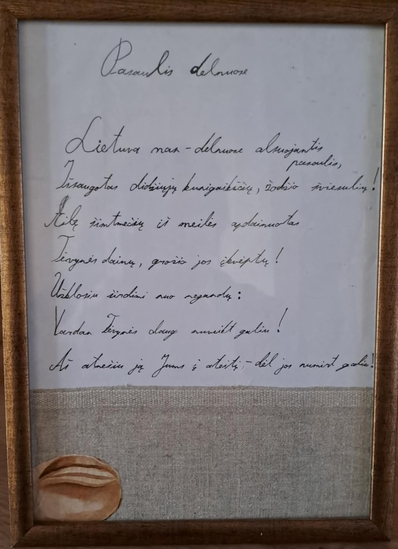 Pasaulis delnuose
Lietuva man - delnuose alsuojantis
pasaulis,
Išsaugotas didžiųjų kunigaikščių, žodžio šviesulių!
Eilę šimtmečių iš meilės apdainuotas
Tėvynės dainų, grožio jos įkvėptų!
Užklosiu širdimi nuo negandų:
Vardan Tėvynės daug nuveikt galiu!
Aš atnešiu ją Jums į ateitį, - dėl jos numirt galiu!